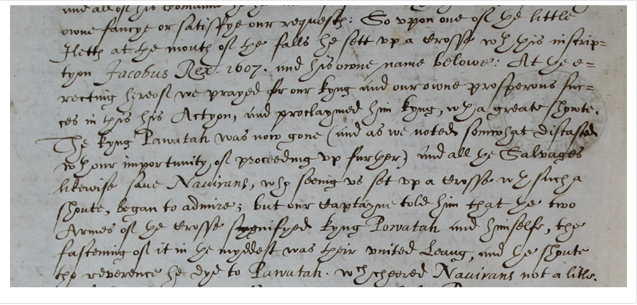 and all of his
owne fancye or satisfye our request: So upon one of the little
Iletts at the mouth of the falls he sett up a Crosse wth this inscrip-
tyon Jacobus Rex. 1607. and his owne name belowe: At the e-
recting hereof we prayed for our kyng and our owne prosperous suc-
ces in this his Actyon, and proclaymed him kyng, wth a greate showte.
The kyng Pawatah was now gone (and as we noted somwhat distasted
wth our importunity of proceeding up further) and all the Salvages
likewise save Navirans, who seeing us set up a Crosse wth such a
showte, began to admire; but our Captayne told him that the two
Armes of the Crosse signifyed kyng Powatah and himselfe, the
fastening of it in the myddest was their united Leaug, and the showte
the reverence he dyd to Pawatah. wch cheered Navirans not a litle.